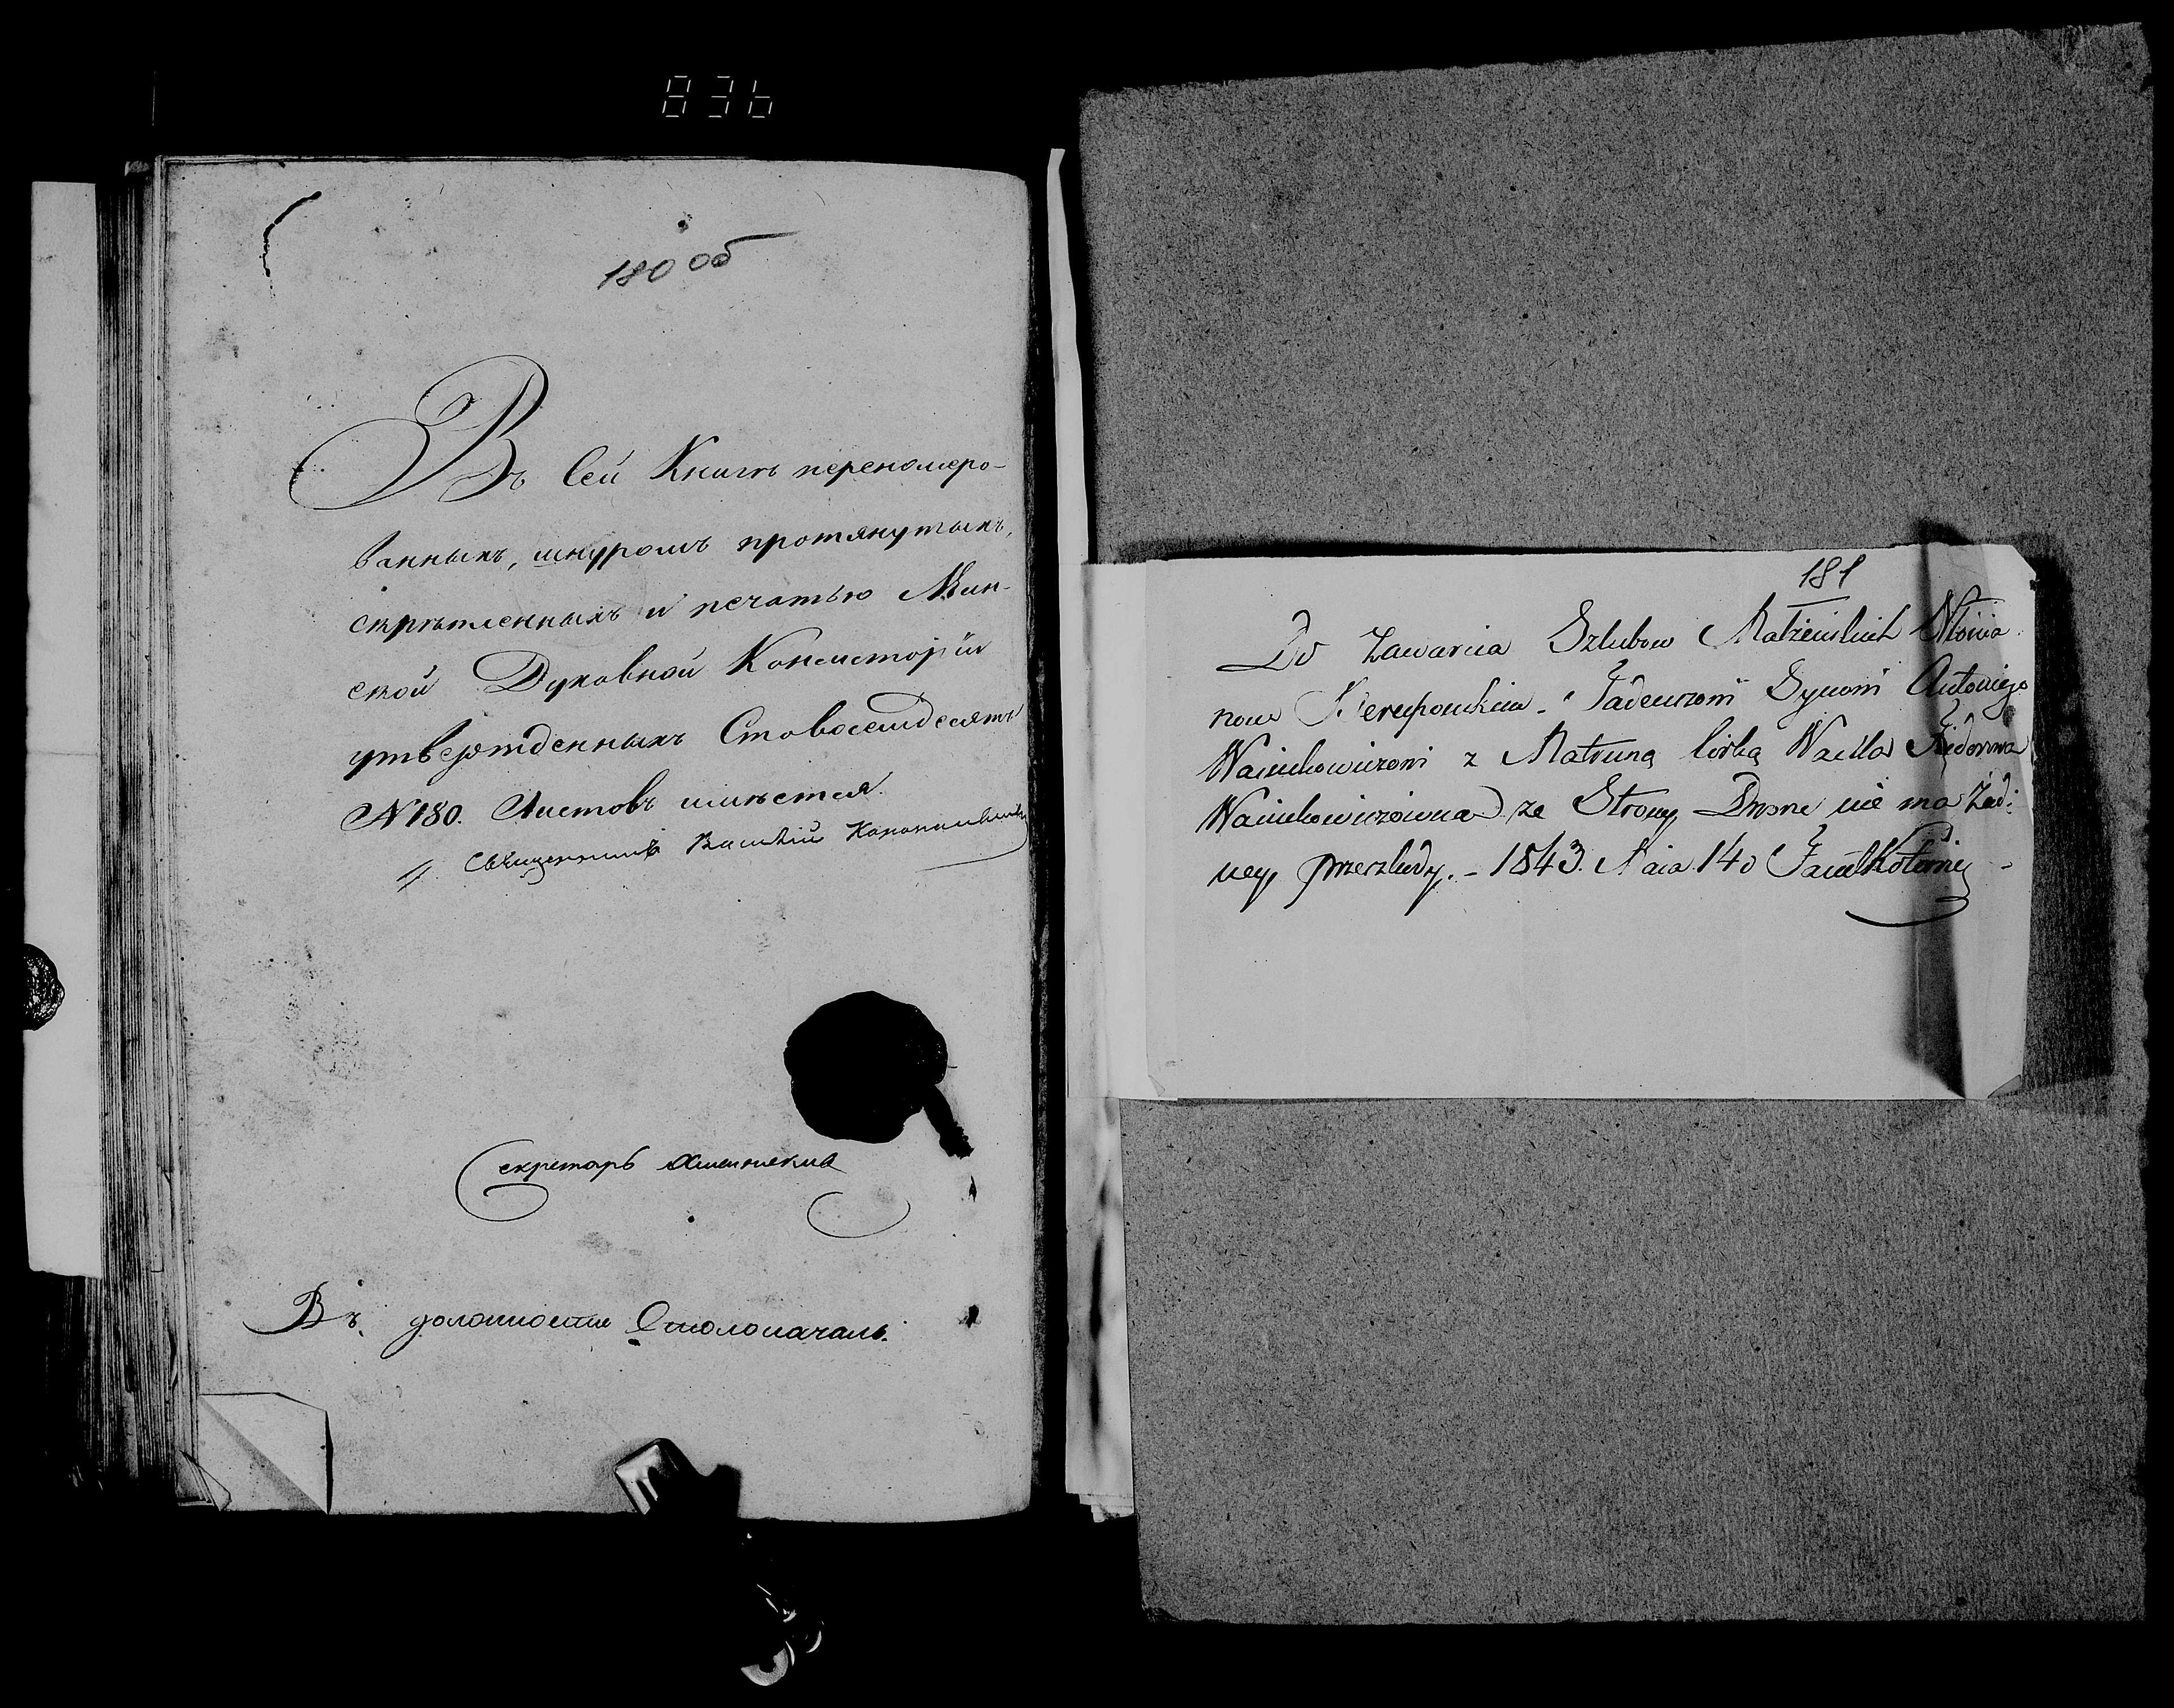 836
180 об
Въ сей Книгѣ переномеро-
ванныхъ, шнуромъ протянутыхъ,
скрѣпленныхъ и печатью Мин-
ской Духовной Консисторіи
утвержденныхъ Стовосемдесятъ
N 180. Листовъ имѣется.
Священникъ Василій
Секретарь
Въ должности Столоначаль.
181
Do Zawarcia Szlubow Małżeńskich Włoscia
now - Tadeuszowi Synowi Antoniego
Wasiukowiczowi z Matruną Corką Wasila Fiedorowa
Wasiukowiczowną ze Strony Dwora nie ma żad:
ney przeszkody. - 1843. Maia 14 d